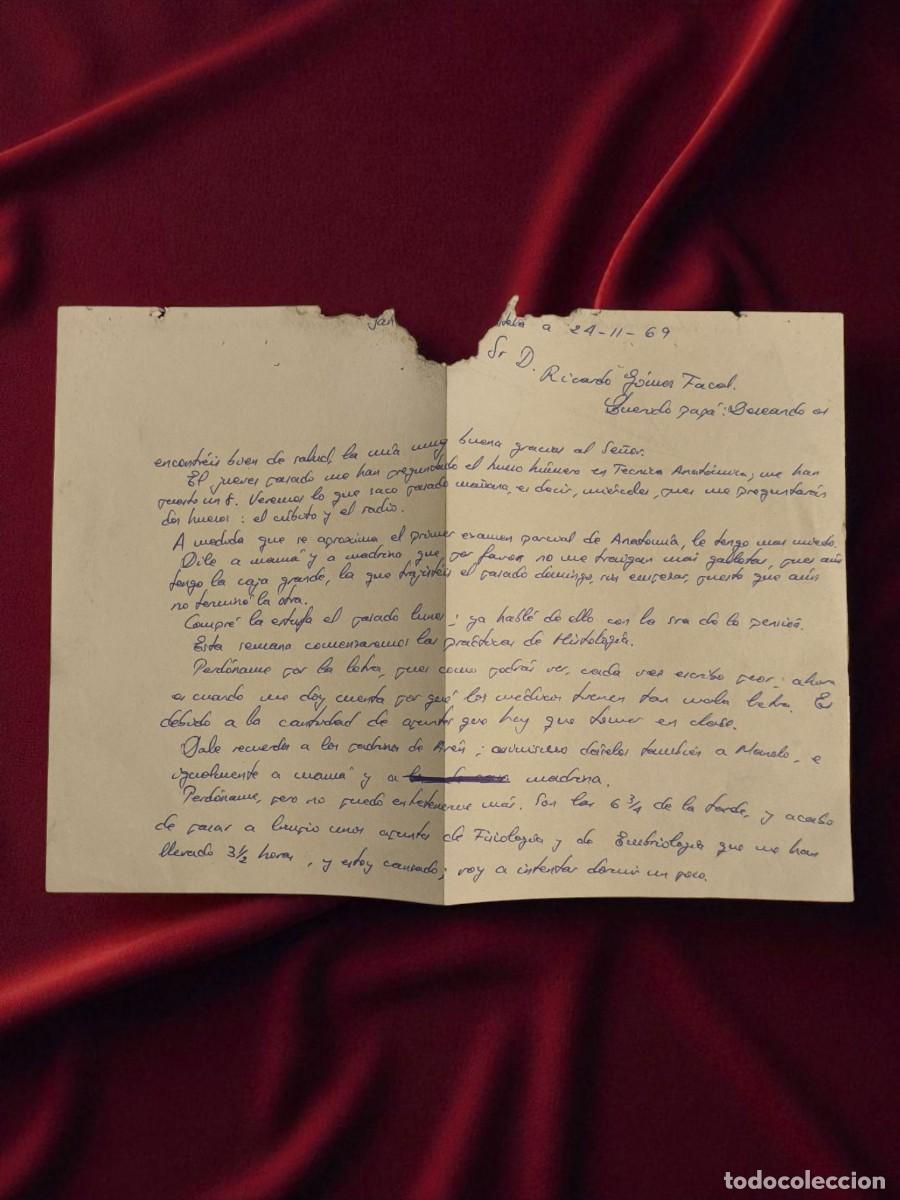 San tela a 24-11-69
Sr D.
Ricardo Gómez Facal.
Querido papá: Deseando os
encontréis bien de salud, la mía muy buena gracias al Señor.
El jueves pasado me han preguntado el hueso húmero en Técnica Anatómica; me han
puesto un 8. Veremos lo que saco pasado mañana, es decir, miércoles, pues me preguntarán
dos huesos: el cúbito y el radio.
A medida que se aproxima el primer examen parcial de Anatomía, le tengo más miedo.
Dile a mamá y a madrina que, por favor, no me traigan más galletas, pues aún
tengo la caja grande, la que trajisteis el pasado domingo, sin empezar, puesto que aún
no terminé la otra.
Compré la estufa el pasado lunes; ya hablé de ello con la sra de la pensión.
Esta semana comenzaremos las prácticas de Histología.
Perdóname por la letra, pues como podrás ver, cada vez escribo peor; ahora
es cuando me doy cuenta por qué los médicos tienen tan mala letra. Es
debido a la cantidad de apuntes que hay que tomar en clase.
Dale recuerdos a los padrinos de ; asimismo dáselos también a Manolo, e
igualmente a mamá y a madrina.
Perdóname, pero no puedo entretenerme más. Son las 6 3/4 de la tarde, y acabo
de pasar a limpio unos apuntes de Fisiología y de Embriología que me han
llevado 3 1/2 horas, y estoy cansado; voy a intentar dormir un poco.
todocoleccion